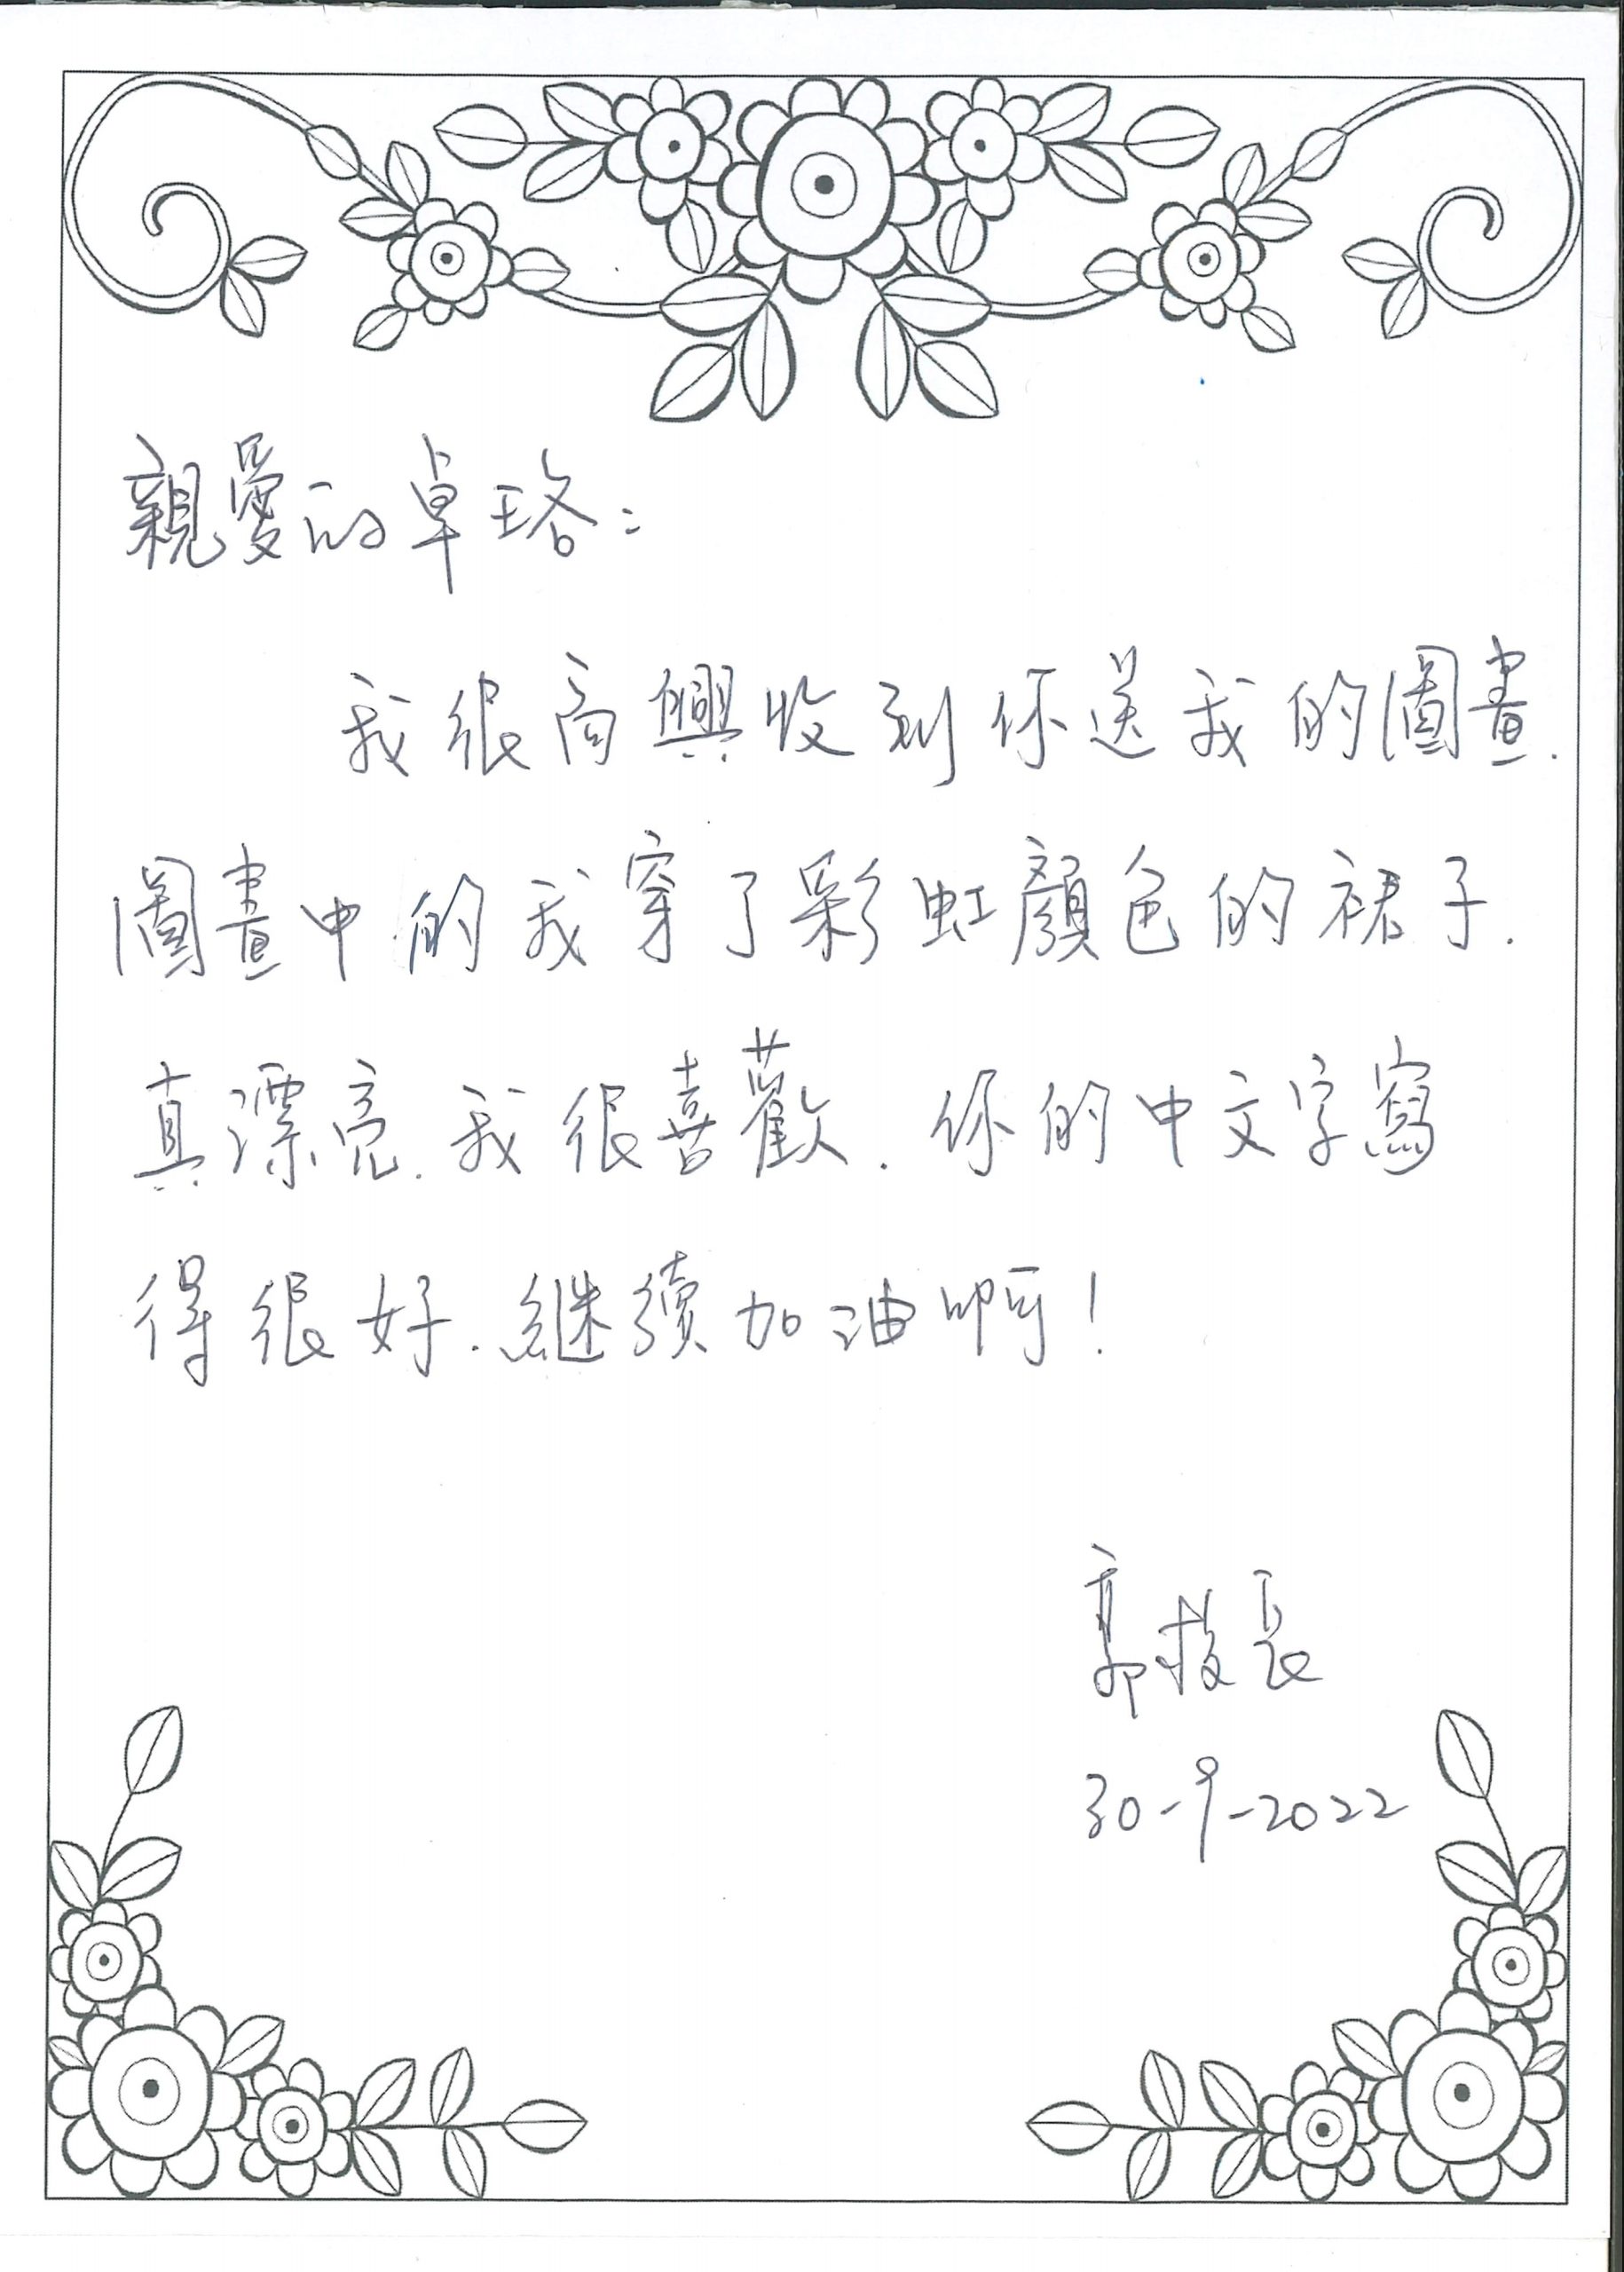 親愛的卓珞：
我很高興收到你送我的圖畫.
圖畫中的我穿了彩虹顏色的裙子.
真漂亮.我很喜歡.你的中文字寫
得很好.繼續加油啊！
郭校長
30-9-2022